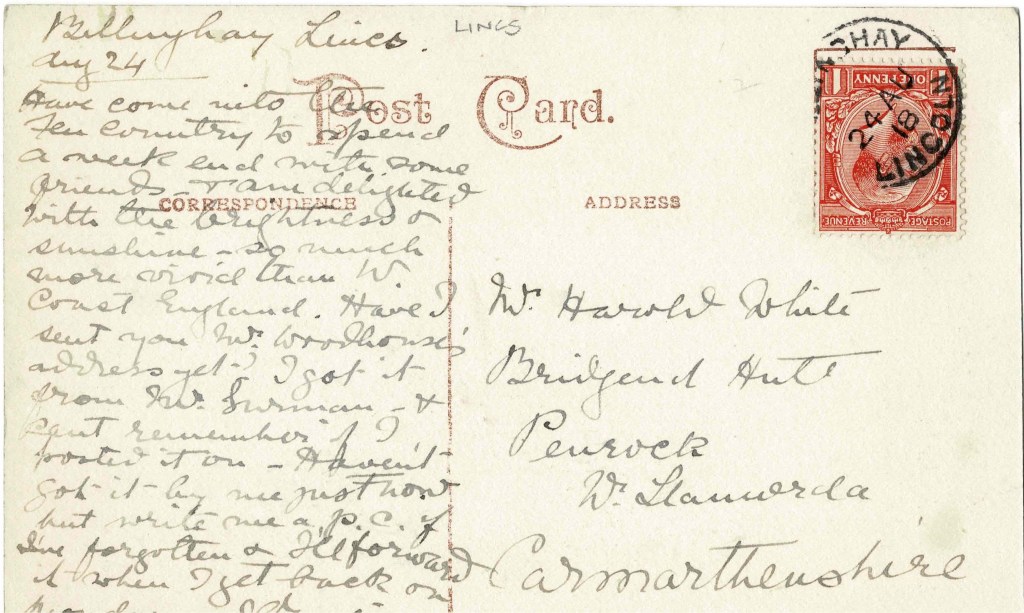 Billinghay Lincs.
Aug 24
LINGS
Post Card.
Have come into
Fen Country to spend
a week end with some
friends & am delighted
with the brightness &
sunshine – so much
more vivid than W.
Coast England. Have I
sent you Mr. Woodhouse's
address yet? I got it
from Mr. Surman – &
cant remember if I
posted it on – Haven't
got it by me just now
but write me a p.c. if
I've forgotten & I'll forward
it when I get back on
CORRESPONDENCE
ADDRESS
GHAY
24 AU
18
LINCOLN
ONE PENNY
1
POSTAGE
REVENUE
Mr. Harold White
Bridgend Hutt
Penrock
Nr. Llanwrda
Carmarthenshire